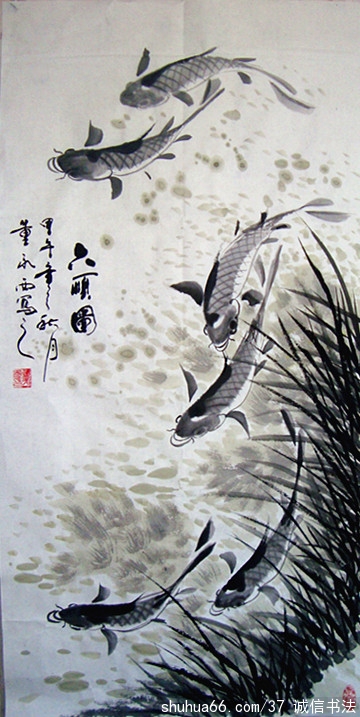 六順圖
甲午年之秋月
董永西寫之
shuhua66.com/37 诚信书法